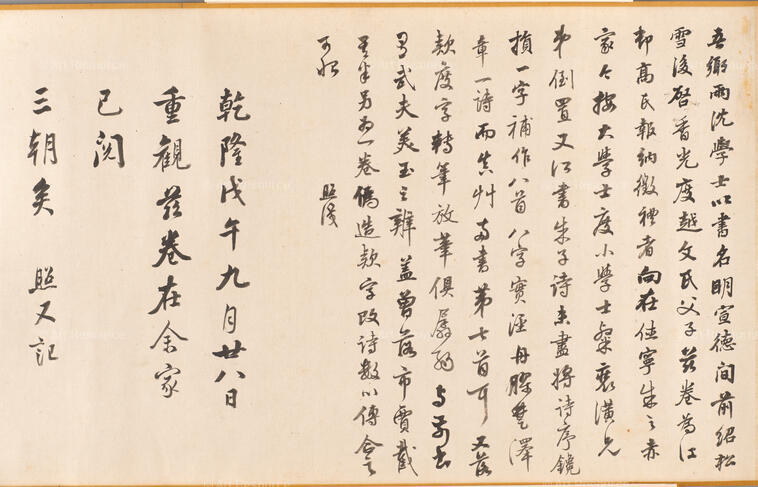 吾鄉兩沈學士以書名明宣德間前紹松
雪後啓香光度越文氏父子茲卷為江
邨高氏報納徵禮者向在休寧朱之赤
家今按大學士度小學士粲裹潢兄
弟倒置又江書朱子詩未盡將詩序鏡
損一字補作八首八字實淫丹膠楚澤
章一詩而真艸書第七首可又落
款度字轉筆放筆俱孱弱与前書
為武夫美玉之辨蓋曾落市賈截
其半另為一卷偽造款字改詩數以傅會之
可恨 照識
乾隆戊午九月廿八日
重觀茲卷在余家
已閱
三朝矣 照又記